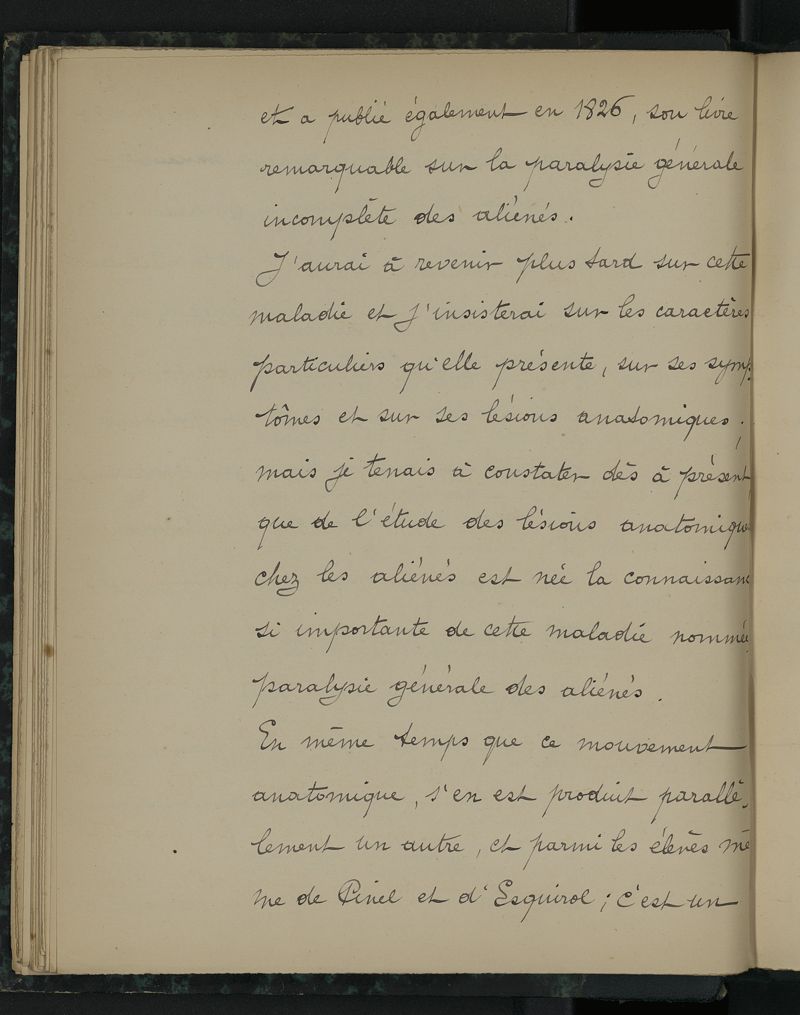 et a publié également en 1826, son livre
remarquable sur la paralysie générale
incomplète des aliénés.
J'aurai à revenir plus tard sur cette
maladie et j'insisterai sur les caractères
particuliers qu'elle présente, sur ses symp
tômes et sur ses lésions anatomiques ;
mais je tenais à constater dès à présent
que de l'étude des lésions anatomique
chez les aliénés est née la connaissanc
si importante de cette maladie nommée
paralysie générale des aliénés.
En même temps que ce mouvement
anatomique, s'en est produit parallè-
lement un autre, et parmi les élèves mê
me de Pinel et d'Esquirol ; c'est un